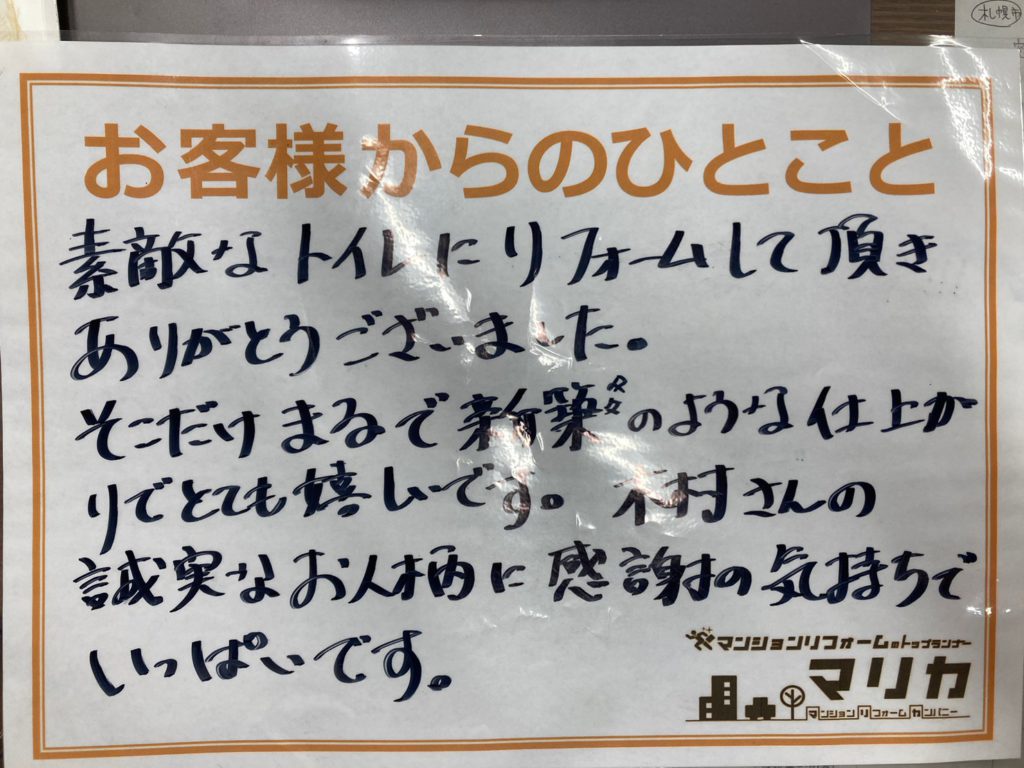 札幌市
お客様からのひとこと
素敵なトイレにリフォームして頂き
ありがとうございました。
そこだけまるで新築々々のような仕上が
りでとても嬉しいです。木村さんの
誠実なお人柄に感謝の気持ちで
いっぱいです。
マンションリフォームのトップランナー
マリカ
マンションリフォームカンパニー